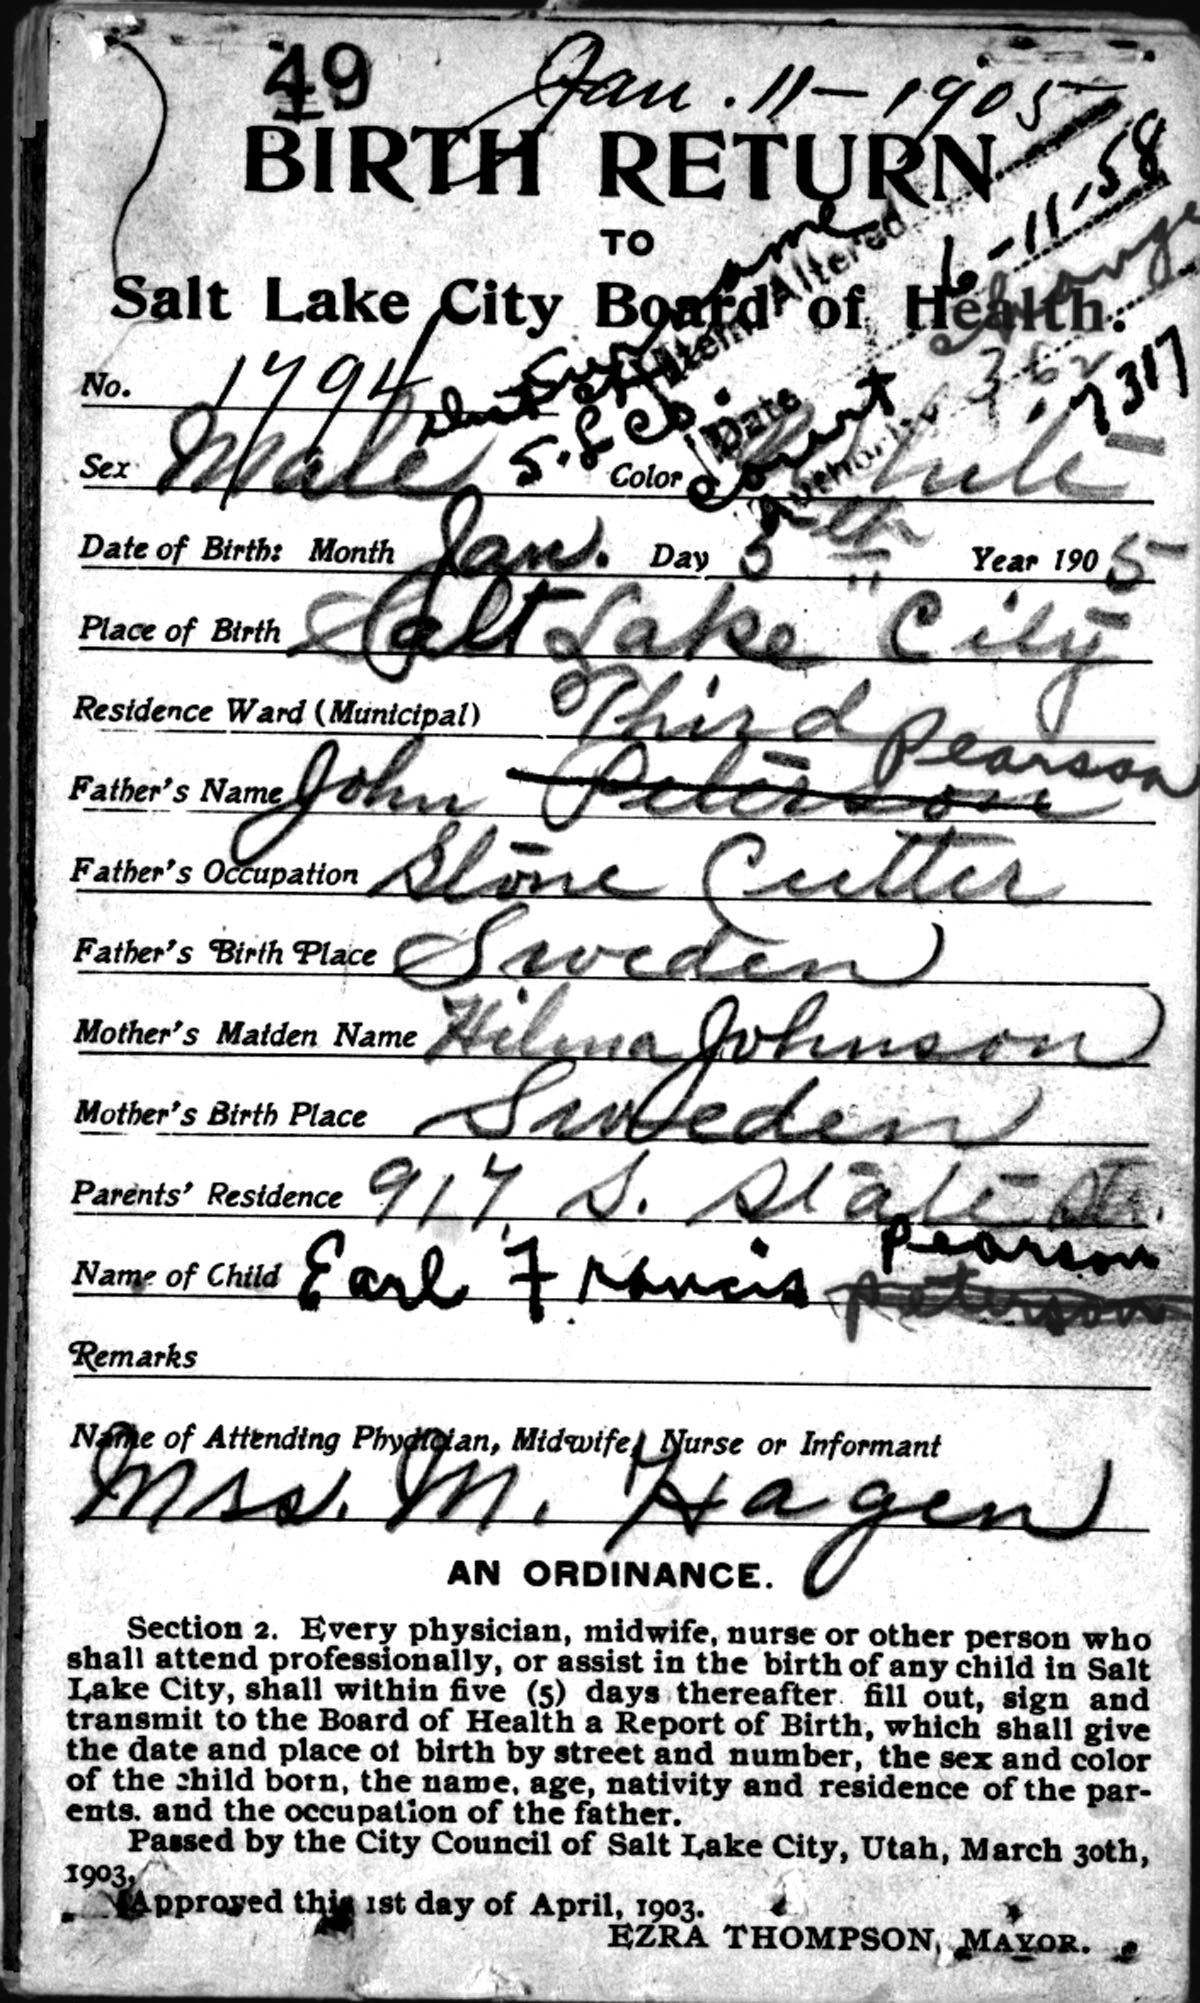 49 Jan. 11 - 1905
BIRTH RETURN
TO
Salt Lake City Board of Health.
Item Altered Surname
Date 6-11-58
Authority Court
7317
No. 1794
Sex Male Color White
Date of Birth: Month Jan. Day 5th Year 1905
Place of Birth Salt Lake City
Residence Ward (Municipal) Third
Father's Name John Peterson Pearson
Father's Occupation Stone Cutter
Father's Birth Place Sweden
Mother's Maiden Name Hilma Johnson
Mother's Birth Place Sweden
Parents' Residence 917 S. State St.
Name of Child Earl Francis Peterson Pearson
Remarks
Name of Attending Physician, Midwife, Nurse or Informant
Mrs. M. Hagen
AN ORDINANCE.
Section 2. Every physician, midwife, nurse or other person who
shall attend professionally, or assist in the birth of any child in Salt
Lake City, shall within five (5) days thereafter fill out, sign and
transmit to the Board of Health a Report of Birth, which shall give
the date and place of birth by street and number, the sex and color
of the child born, the name, age, nativity and residence of the par-
ents. and the occupation of the father.
Passed by the City Council of Salt Lake City, Utah, March 30th,
1903,
Approved this 1st day of April, 1903.
EZRA THOMPSON, MAYOR.